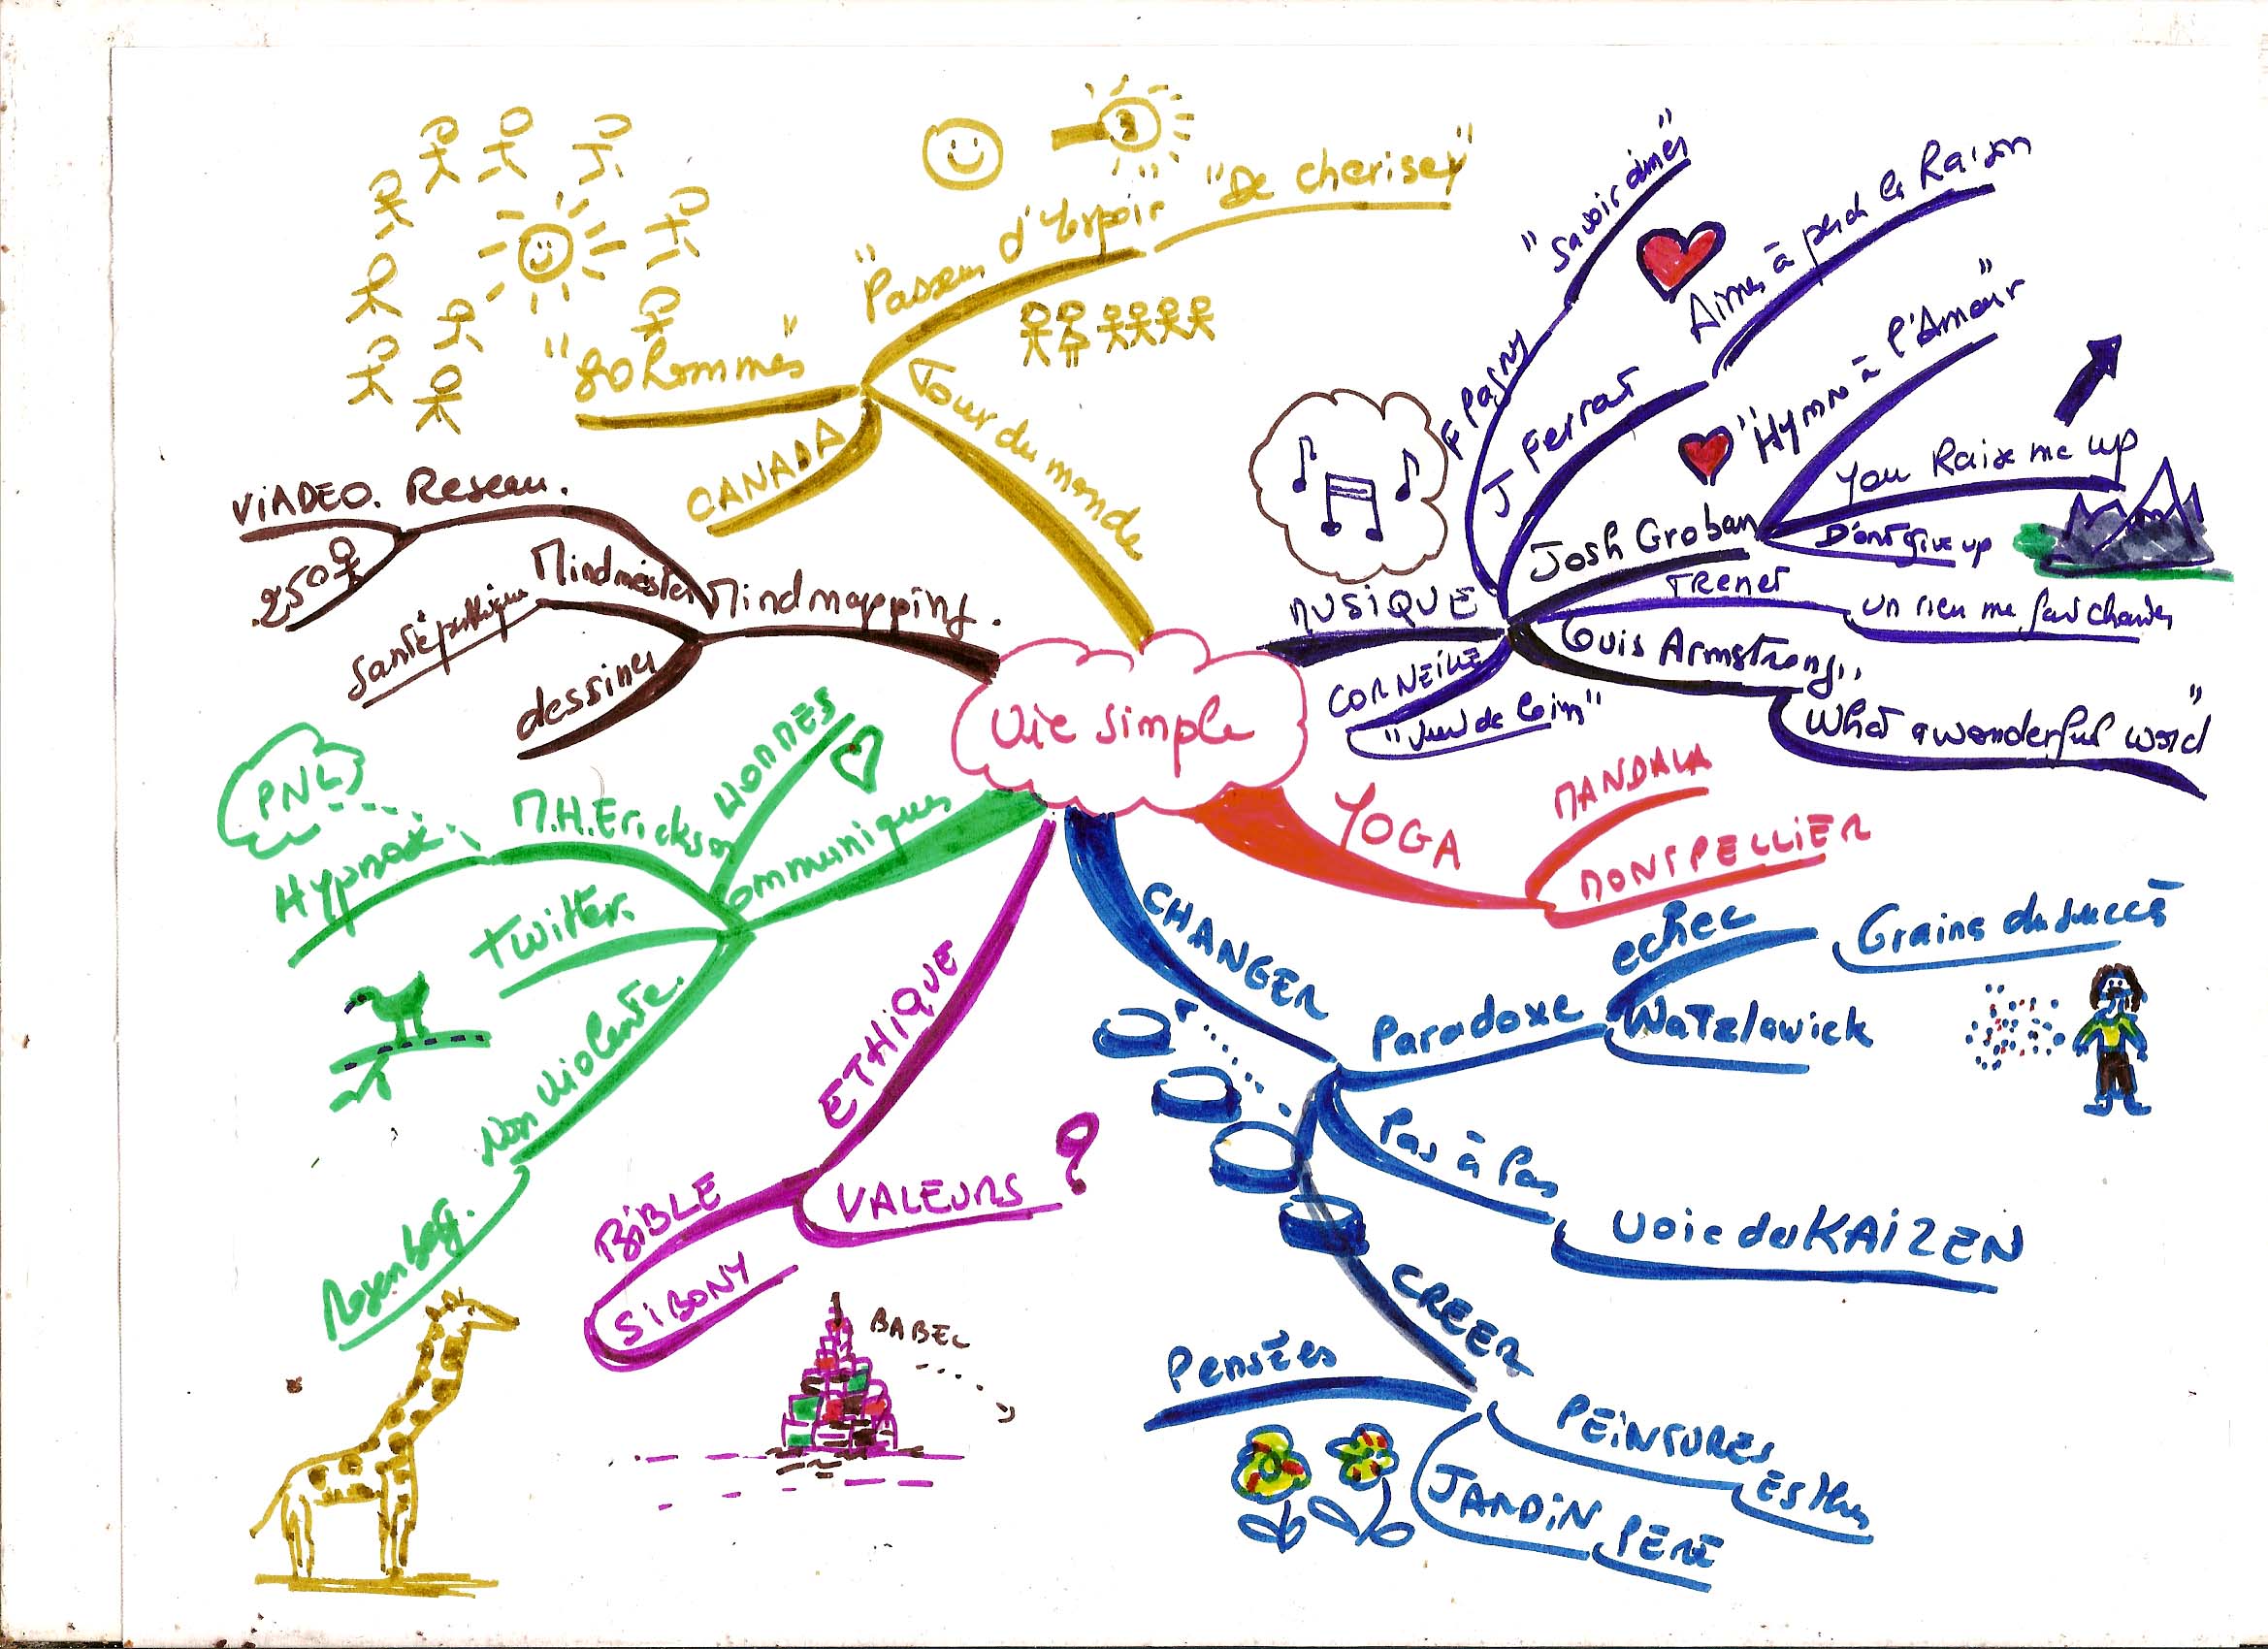 Vie simple
"Passeur d'espoir"
"De cherisey"
"80 hommes"
Tour du monde
CANADA
Mindmapping.
Mindmeister
Reseau.
ViADEO.
250
Santé publique
dessiner
communiquer
HOMMES
M.H. Erickson
Hypnose
PNL
Twitter.
Non Violente.
Rosenberg.
ETHiQUE
BiBLE
SiBONY
VALEURS ?
BABEL
CHANGER
Paradoxe
echec
Graine du succès
Watzlawick
Pas à Pas
Voie du KAiZEN
CREER
Pensées
PEiNTURES
JARDiN
PERE
YOGA
MANDALA
MONTPELLiER
MUSiQUE
F Pagny
"Savoir aimer"
J Ferrat
Aimer à perdre la Raison
Josh Groban
"Hymn à l'Amour"
You Raise me up
D'ont give up
TReneT
un rien me fait chanter
Louis Armstrong
What a wonderful world"
CORNEiLLE